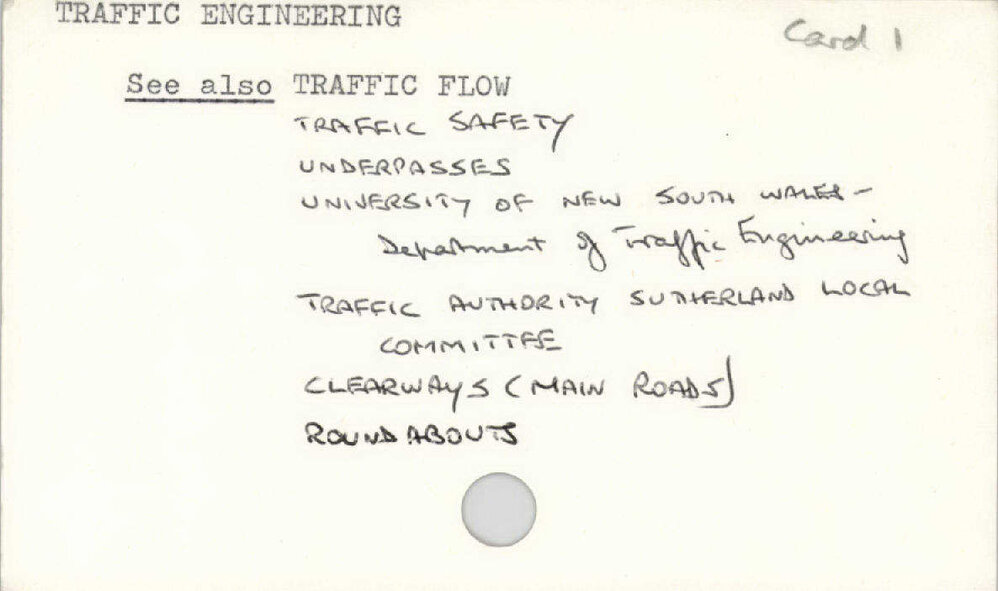 TRAFFIC ENGINEERING
Card 1
See also TRAFFIC FLOW
TRAFFIC SAFETY
UNDERPASSES
UNIVERSITY OF NEW SOUTH WALES -
Department of Traffic Engineering
TRAFFIC AUTHORITY SUTHERLAND LOCAL
COMMITTEE
CLEARWAYS (MAIN ROADS)
ROUNDABOUTS